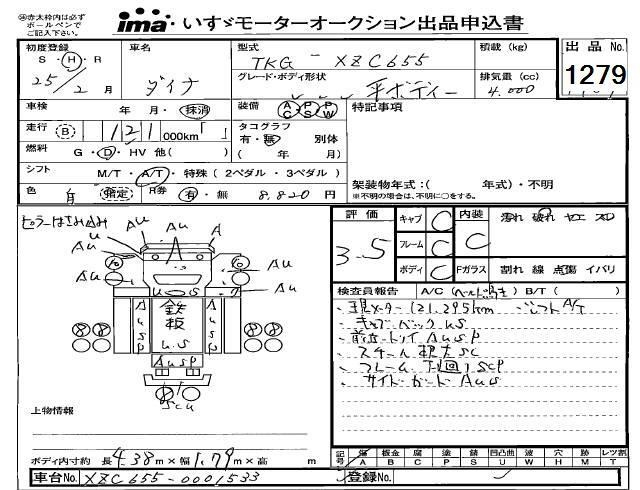 ※赤太枠内は必ず
ボールペンで
ご記入下さい。
ima いすゞモーターオークション出品申込書
初度登録 車名 型式 積載 (kg) 出品 No.
S・H・R TKG - XZC655
25/2月 ダイナ グレード・ボディ形状 排気量 (cc) 1279
平ボディー 4.000
車検 年 月・抹消 装備 AC PS PW 特記事項
走行 B 121 000km「 」 タコグラフ
有・無 別体
燃料 G・D・HV 他( ) ( 年 月)
シフト M/T・A/T・特殊 (2ペダル・3ペダル) 架装物年式:( 年式)・不明
※不明の場合は、不明に○をする。
色 指定 R券 有・無 8,820 円
評価 キャブ C 内装 汚れ 破れ ヤケ スレ
3.5 フレーム C C
ボディ C Fガラス 割れ 線 点傷 イバリ
検査員報告 A/C ( ) B/T ( )
現メーター121,295km シフトA/T
キャブバック US
AUSP
スチール SC
フレーム 下回り SCP
サイドガード AUS
U AU A
AU AU
AU
U U
鉄板
AUSP U.S AUSP
AUSP
SCU
上物情報
ボディ内寸約 長 4.38 m × 幅 1.79 m × 高 m
記号 傷 板金 腐 塗 錆 凹凸曲 波 穴 歩 レツ割
A B C P S U W H M T
車台No. XZC655-0001533 登録No.